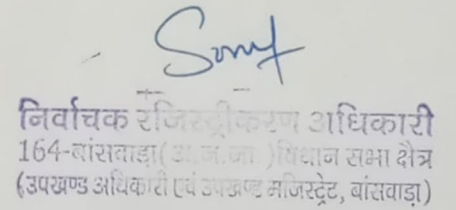 निर्वाचक रजिस्ट्रीकरण अधिकारी
164-बांसवाड़ा(अ.ज.जा )विधान सभा क्षेत्र
(उपखण्ड अधिकारी एवं उपखण्ड मजिस्ट्रेट, बांसवाड़ा)